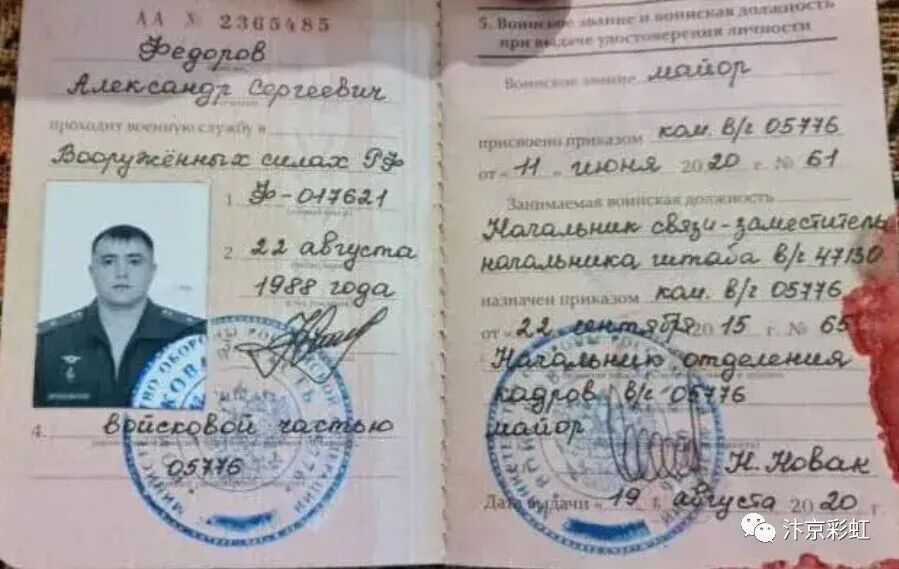 АА № 2365485
Фёдоров
Александр Сергеевич
проходит военную службу в
Вооружённых силах РФ
1. Ф-017621
2. 22 августа
1988 года
4. войсковой частью
05776
5. Воинское звание и воинская должность
при выдаче удостоверения личности
Воинское звание майор
присвоено приказом ком. в/ч 05776
от «11» июня 2020 г. № 61
Занимаемая воинская должность
Начальник связи-заместитель
начальника штаба в/ч 47130
назначен приказом ком. в/ч 05776
от «22 сентября 2015 г. № 65
Начальник отделения
кадров в/ч 05776
майор
Н. Новак
Дата выдачи «19» августа 2020 г.
汴京彩虹